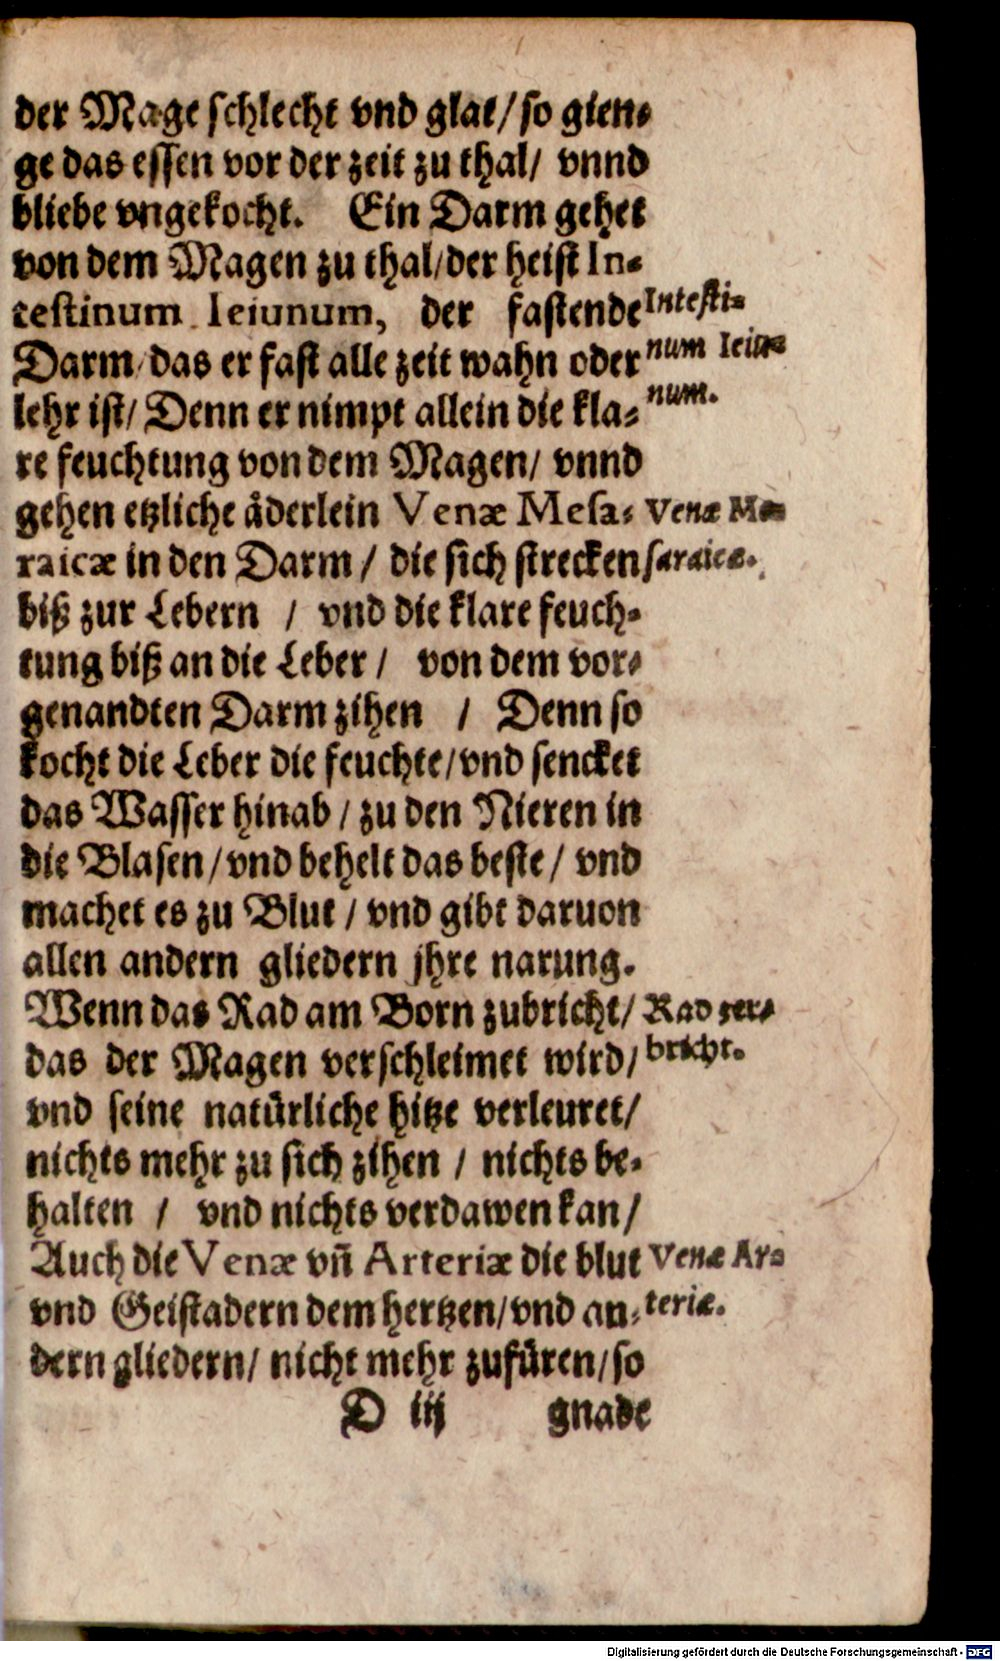 der Mage schlecht vnd glat/ so gien-
ge das essen vor der zeit zu thal/ vnnd
bliebe vngekocht. Ein Darm gehet
von dem Magen zu thal/ der heist In-
testinum Ieiunum, der fastende
Intesti-
Darm/ das er fast alle zeit wahn oder
num Ieiu-
lehr ist/ Denn er nimpt allein die kla-
num.
re feuchtung von dem Magen/ vnnd
gehen etzliche åderlein Venæ Mesa-
Venæ Me-
raicæ in den Darm / die sich strecken
saraicæ.
biß zur Lebern / vnd die klare feuch-
tung biß an die Leber / von dem vor-
genandten Darm zihen / Denn so
kocht die Leber die feuchte/ vnd sencket
das Wasser hinab / zu den Nieren in
die Blasen/ vnd behelt das beste / vnd
machet es zu Blut / vnd gibt daruon
allen andern gliedern jhre narung.
Wenn das Rad am Born zubricht/
Rad zer-
das der Magen verschleimet wird/
bricht.
vnd seine natürliche hitze verleuret/
nichts mehr zu sich zihen / nichts be-
halten / vnd nichts verdawen kan/
Auch die Venæ vñ Arteriæ die blut
Venæ Ar-
vnd Geistadern dem hertzen/ vnd an-
teriæ.
dern gliedern/ nicht mehr zufüren/ so
D iij gnade
Digitalisierung gefördert durch die Deutsche Forschungsgemeinschaft - DFG